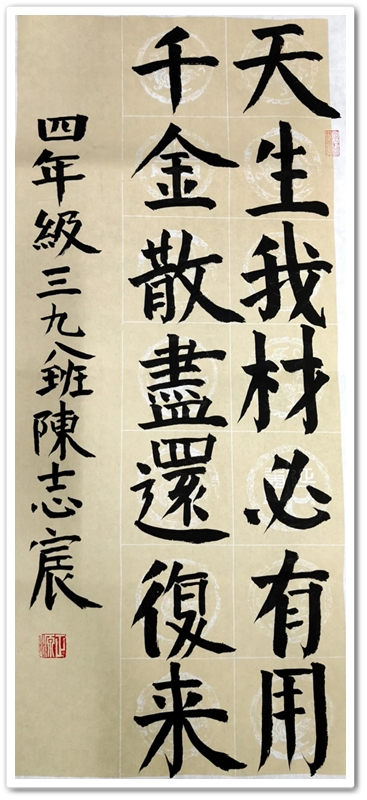 天生我材必有用
千金散盡還復来
四年級三九八班陳志宸